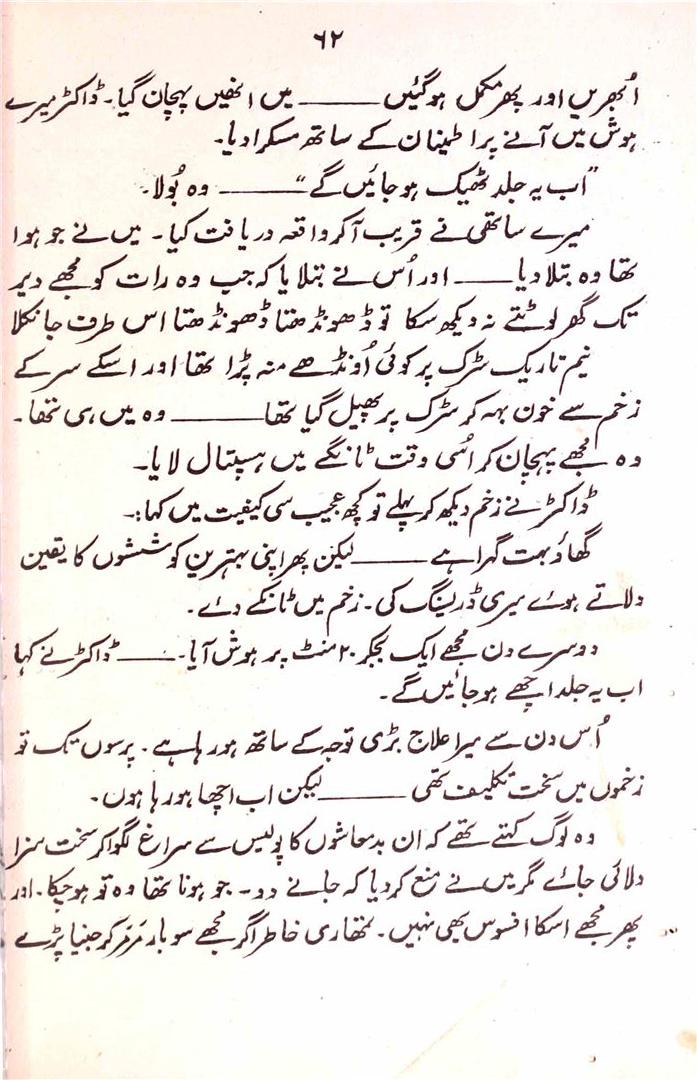 ۶۲
اُبھریں اور پھر مکمل ہوگئیں ——— میں انھیں پہچان گیا۔ ڈاکٹر میرے
ہوش میں آنے پر اطمینان کے ساتھ مسکرا دیا۔
"اب یہ جلد ٹھیک ہو جائیں گے" ——— وہ بُولا۔
میرے ساتھی نے قریب آکر واقعہ دریافت کیا۔ میں نے جو ہوا
تھا وہ بتلا دیا ——— اور اُس نے بتلایا کہ جب وہ رات کو مجھے دیر
تک گھر لوٹتے نہ دیکھ سکا تو ڈھونڈھتا ڈھونڈھتا اس طرف جا نکلا
نیم تاریک سڑک پر کوئی اُوندھے منہ پڑا تھا اور اسکے سر کے
زخم سے خون بہہ کر سڑک پر پھیل گیا تھا ——— وہ میں ہی تھا۔
وہ مجھے پہچان کر اُسی وقت ٹانگے میں ہسپتال لایا۔
ڈاکٹر نے زخم دیکھ کر پہلے تو کچھ عجیب سی کیفیت میں کہا:۔
گھاؤ بہت گہرا ہے ——— لیکن پھر اپنی بہترین کوششوں کا یقین
دلاتے ہوئے میری ڈریسنگ کی۔ زخم میں ٹانکے دئے۔
دوسرے دن مجھے ایک بجکر ۲۰ منٹ پر ہوش آیا۔ ——— ڈاکٹر نے کہا
اب یہ جلد اچھے ہو جائیں گے۔
اُس دن سے میرا علاج بڑی توجہ کے ساتھ ہو رہا ہے۔ پرسوں تک تو
زخموں میں سخت تکلیف تھی ——— لیکن اب اچھا ہو رہا ہوں۔
وہ لوگ کہتے تھے کہ ان بدمعاشوں کا پولیس سے سراغ لگوا کر سخت سزا
دلائی جائے مگر میں نے منع کر دیا کہ جانے دو۔ جو ہونا تھا وہ تو ہو چکا۔ اور
پھر مجھے اسکا افسوس بھی نہیں۔ تمھاری خاطر اگر مجھے سو بار مَر مَر کر جینا پڑے